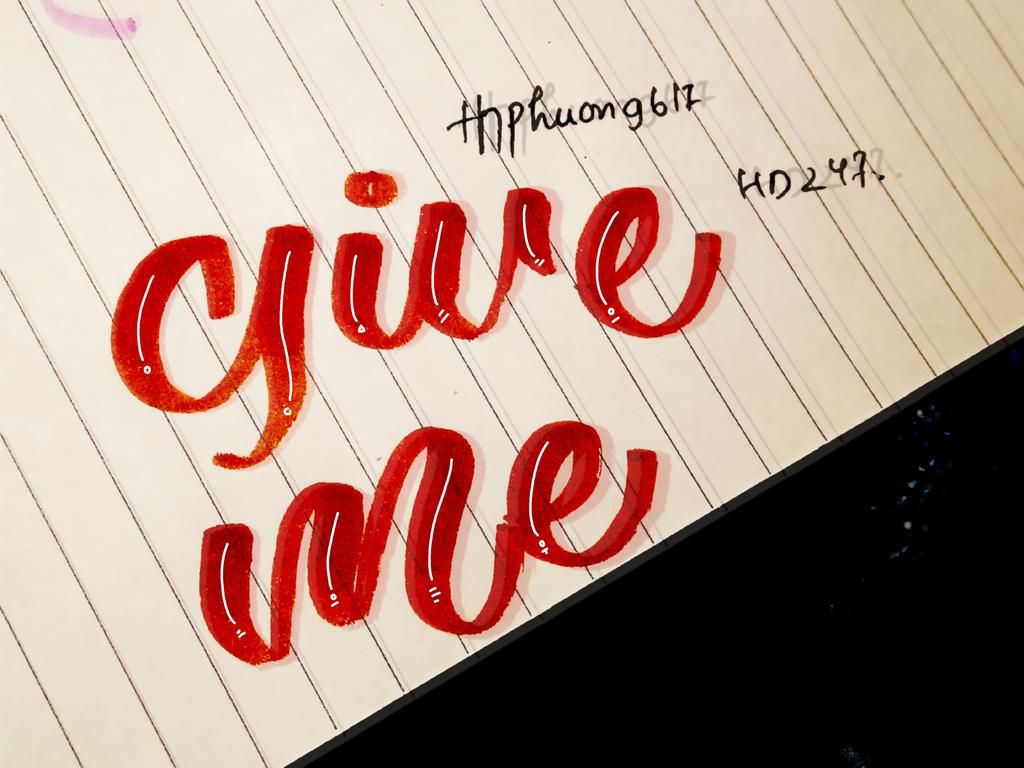 Hhphuong617
HD247.
give
me